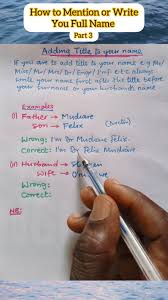 How to Mention or Write
You Full Name
Part 3
Adding Title to your name
If you are to add title to your name e.g Mr/
Miss/Mr/Mrs/Dr/Engr/Prof etc always
write your name first after the title before
your surname or your husband's name
Examples
(i) Father → Mudiare
Son → Felix (Doctor)
Wrong: I'm Dr Mudiare Felix.
Correct: I'm Dr Felix Mudiare
(ii) Husband →
Wife →
Wrong:
Correct:
NB: